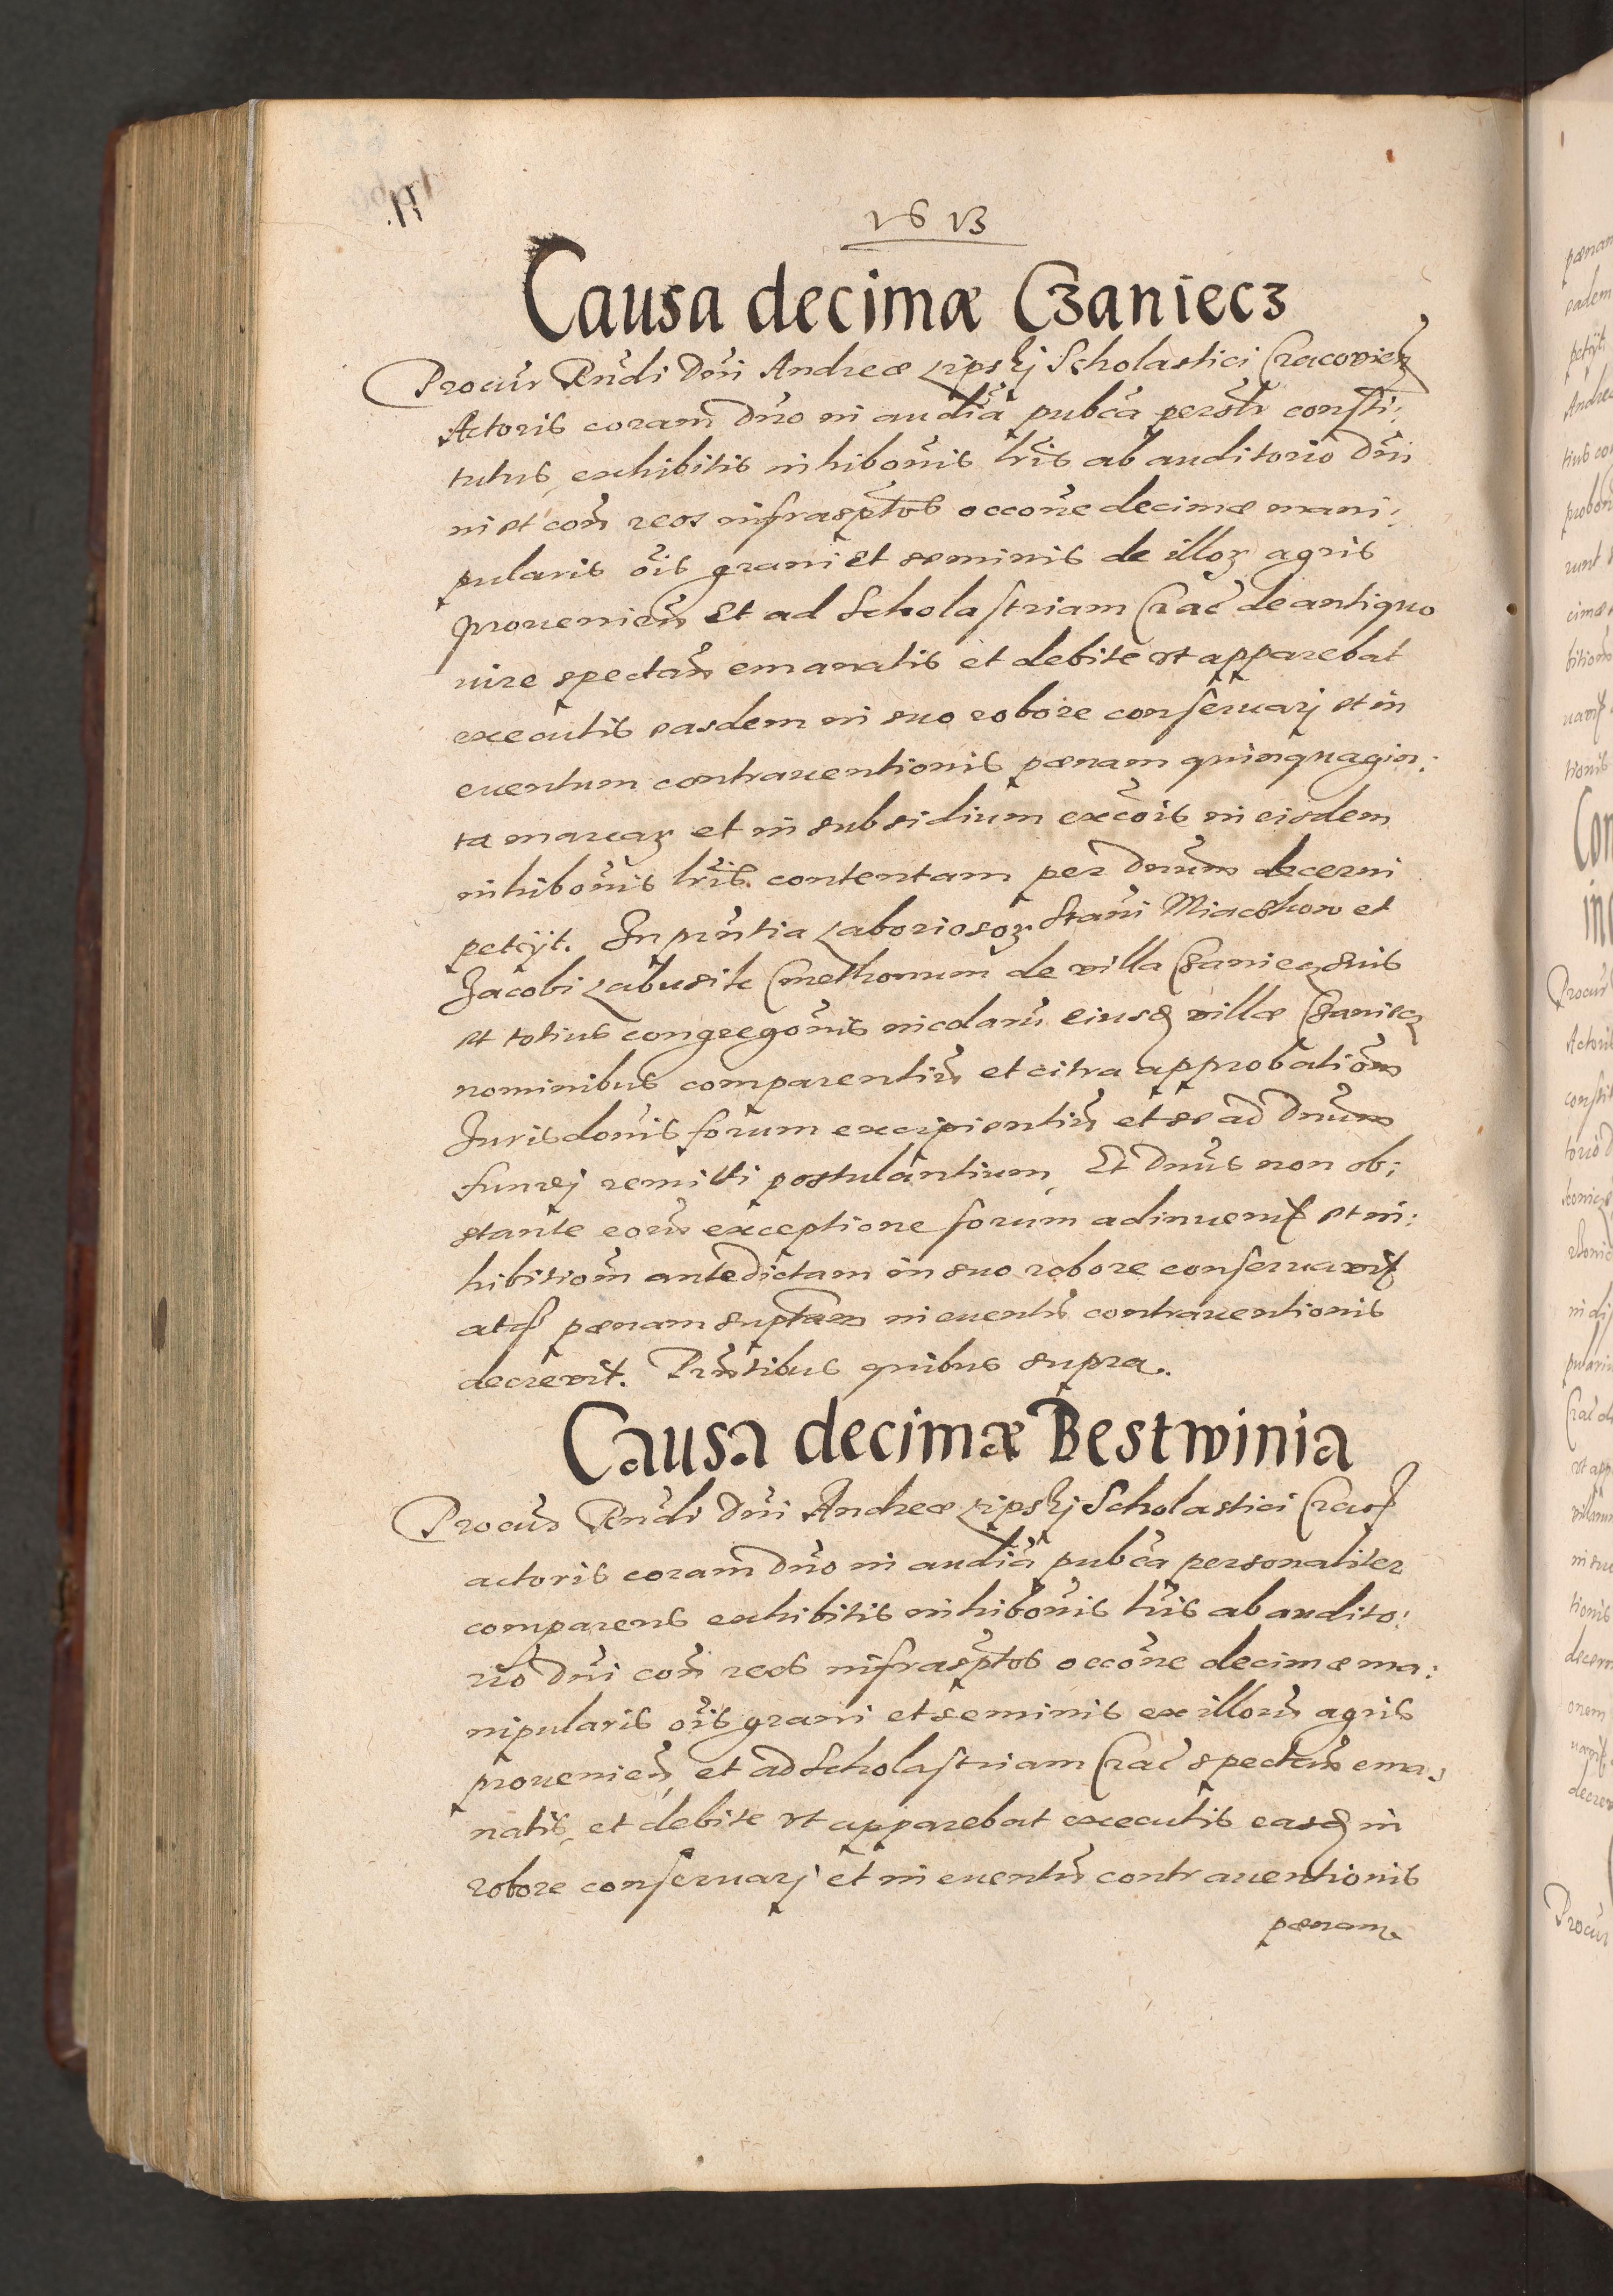 1613
Causa decimæ Czaniecz
Procur Rndi Dni Andreæ Lipskj Scholastici Cracovien
Actoris coram Dno in audia pubca persolr consti:
tutus, exhibitis inhibonis lris ab auditorio Dni
in et con reos infrasptos occone decimæ mani:
pularis ois grani et seminis de illoꝝ agris
provenien et ad Scholastriam Crac de antiquo
iure spectan emanatis et debite vt apparebat
executis easdem in suo robore conseruarj et in
euentum contrauentionis pœnam quinquagin:
ta marcaꝝ et in subsidium excois in eisdem
inhibonis lris contentam per Dnum decerni
petijt. In pntia Laboriosoꝝ Stani Miaczkow et
Jacobi Labusik Cmethonum de villa Czaniecz suis
et totius congregonis incolarū eiusd villæ Czaniecz
nominibus comparentiū et citra approbationem
Jurisdonis forum excipientiū et se ad Dnum
fundj remitti postulantium, Et Dnus non ob:
stante eorū exceptione forum adinuenit et in:
hibitiom antedictam in suo robore conseruavit
atq pœnam suptam in euentū contrauentionis
decrevit. Pntibus quibus supra.
Causa decimæ Bestwinia
Procur Rndi Dni Andreæ Lipskj Scholastici Crac
actoris coram Dno in audia pubca personaliter
comparens exhibitis inhibonis lris ab audito:
rio Dni con reos infrasptos occone decimæ ma:
nipularis ois grani et seminis ex illorū agris
provenien, et ad Scholastriam Crac spectan ema:
natis, et debite vt apparebat executis easd in
robore conseruarj et in euentū contrauentionis
pœnam